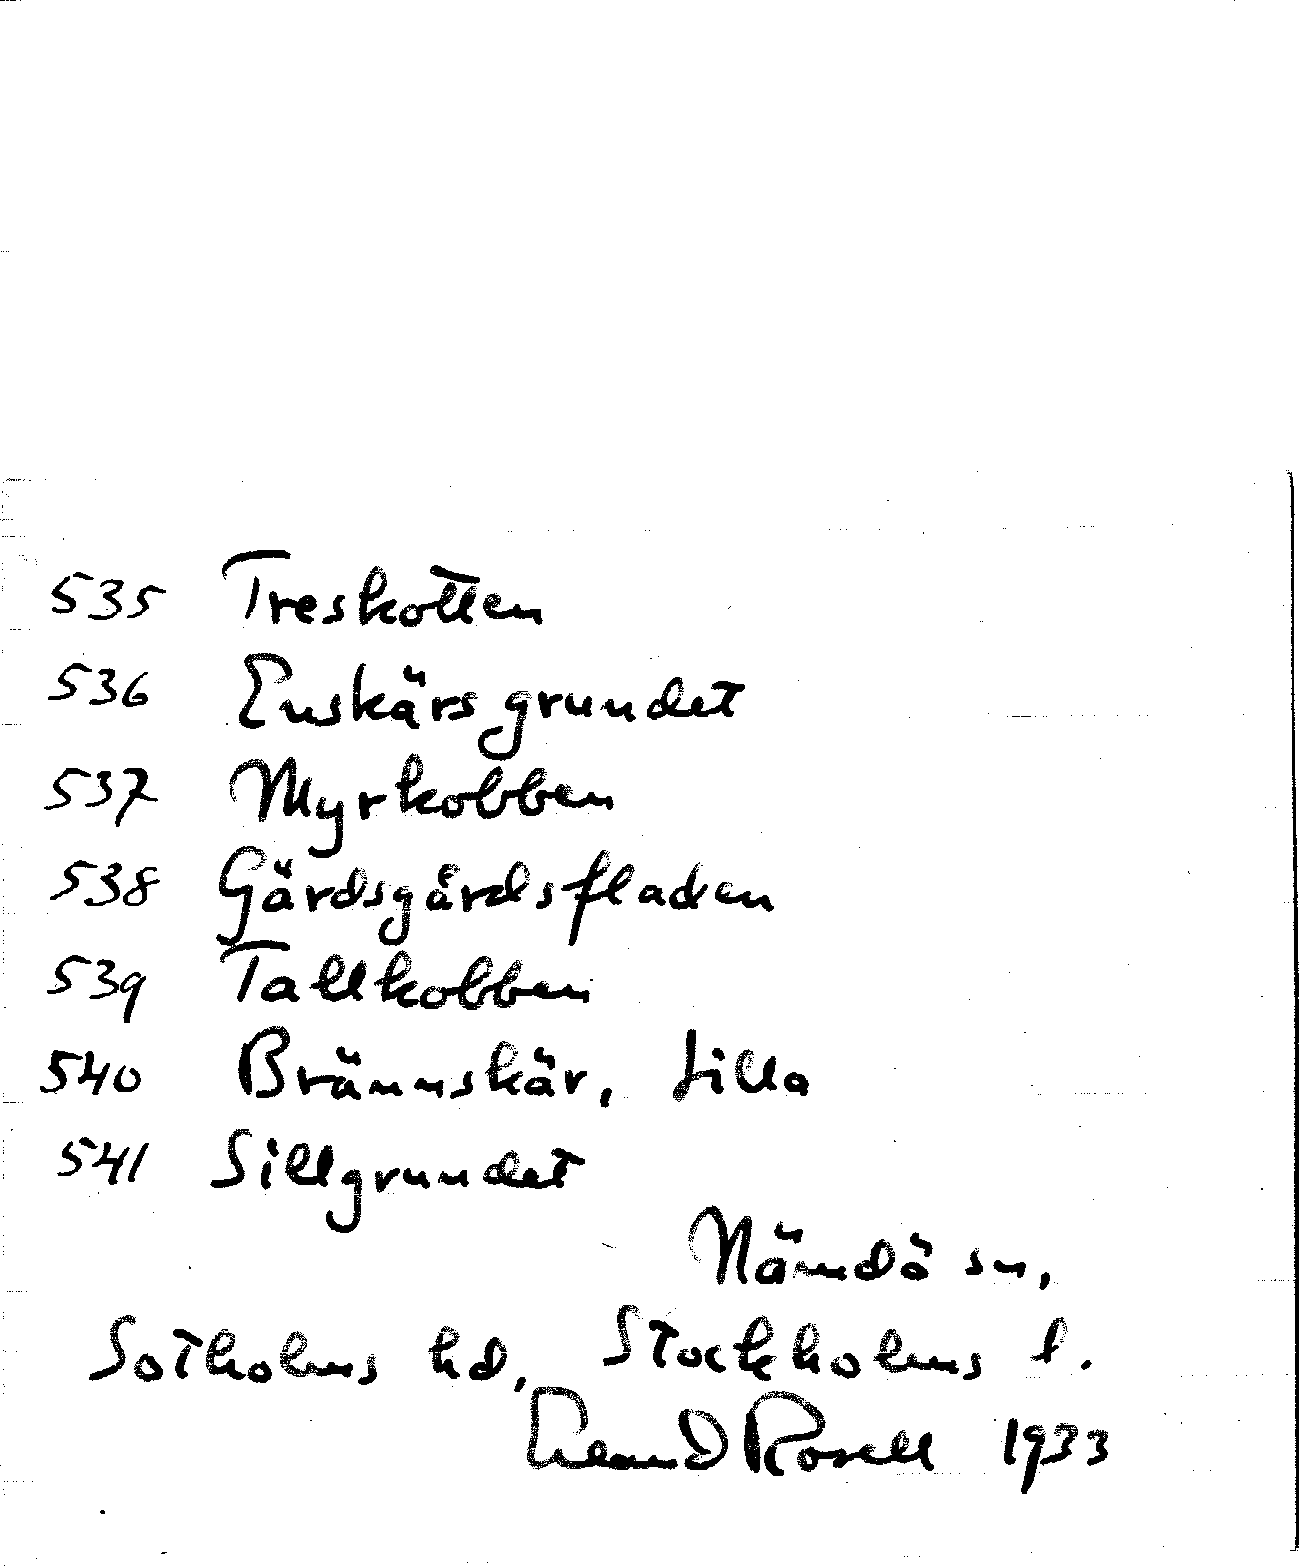 535 Treskotten
536 Enskärsgrundet
537 Myrkobben
538 Gärdsgårdsfladen
539 Tallkobben
540 Brännskär, Lilla
541 Sillgrundet
Nämdö sn,
Sotholms hd, Stockholms l.
Rosell 1933